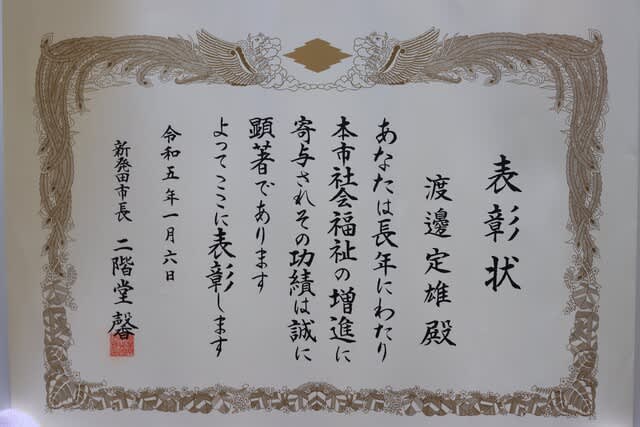 表彰状
渡邊定雄殿
あなたは長年にわたり
本市社会福祉の増進に
寄与されその功績は誠に
顕著であります
よってここに表彰します
令和五年一月六日
新発田市長 二階堂馨